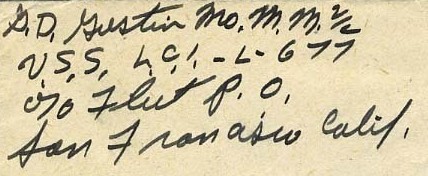 G.D. Gustin Mo. M. M. 2/c
U.S.S. L.C.I. - L - 677
c/o Fleet P.O.
San Francisco Calif.